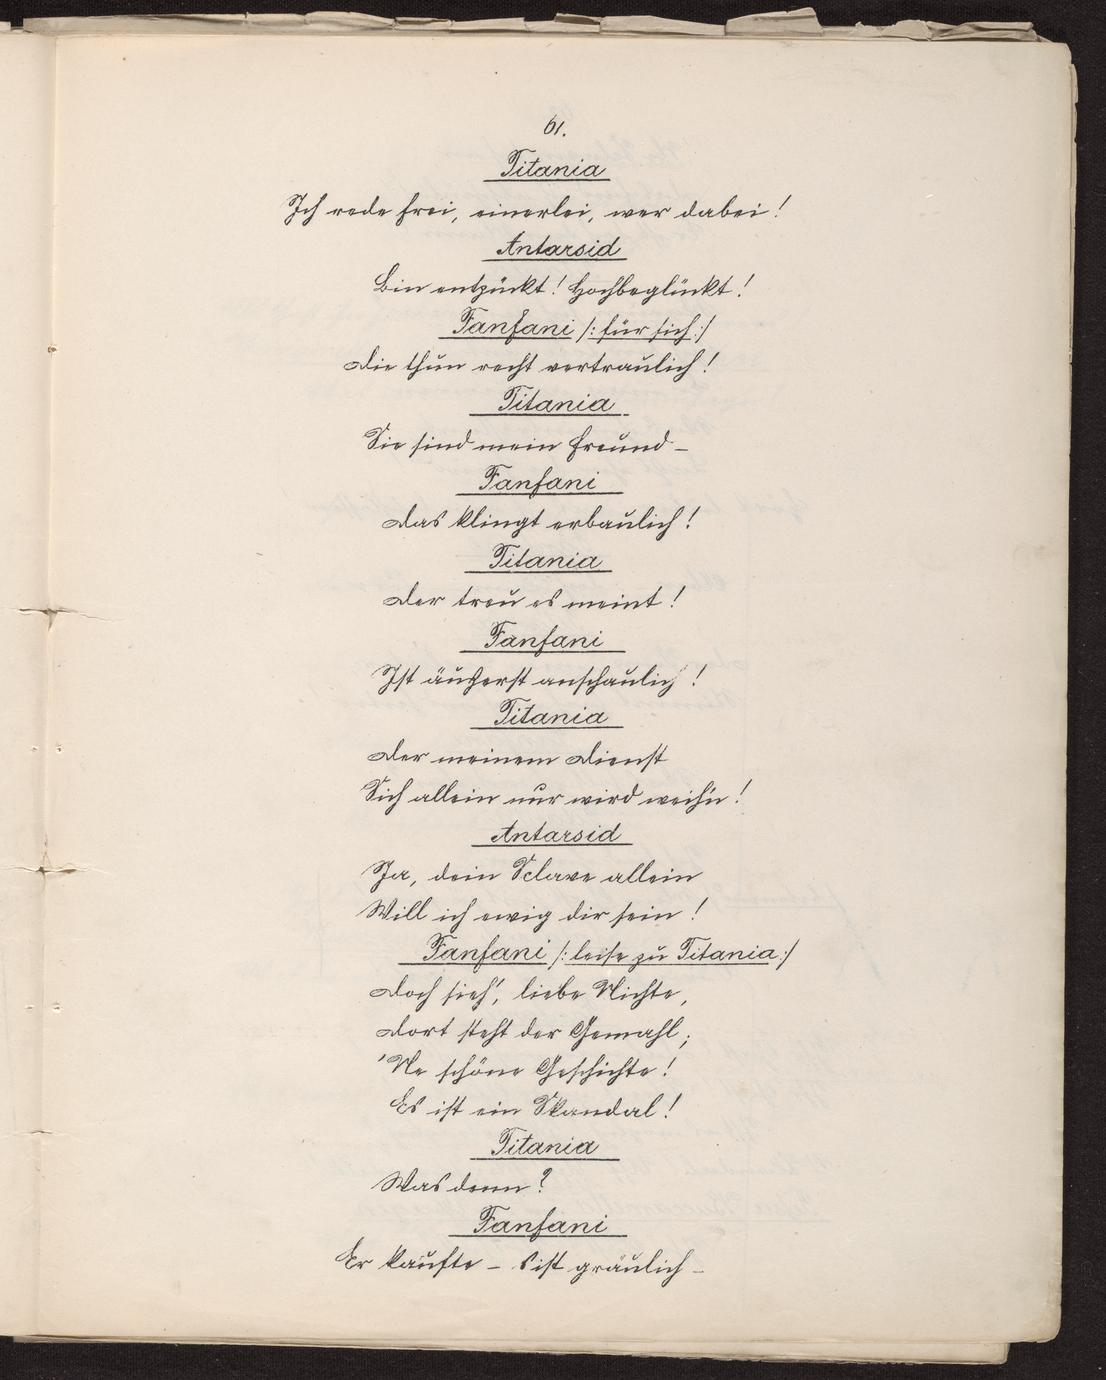 61.
Titania
Ich rede frei, einerlei, wer dabei!
Antarsid
Bin entzückt! Hochbeglückt!
Fanfani /: für sich :/
Die thun recht vertraulich!
Titania
Sie sind mein Freund –
Fanfani
Das klingt erbaulich!
Titania
Der treu es meint!
Fanfani
Ist äußerst anschaulich!
Titania
Der meinem Dienst
Sich allein nur wird weih'n!
Antarsid
Ja, dein Sclave allein
Will ich ewig dir sein!
Fanfani /: leise zu Titania :/
Doch sieh', liebe Nichte,
Dort steht der Gemahl;
'Ne schöne Geschichte!
Es ist ein Skandal!
Titania
Was denn?
Fanfani
Er kaufte – s'ist gräulich –